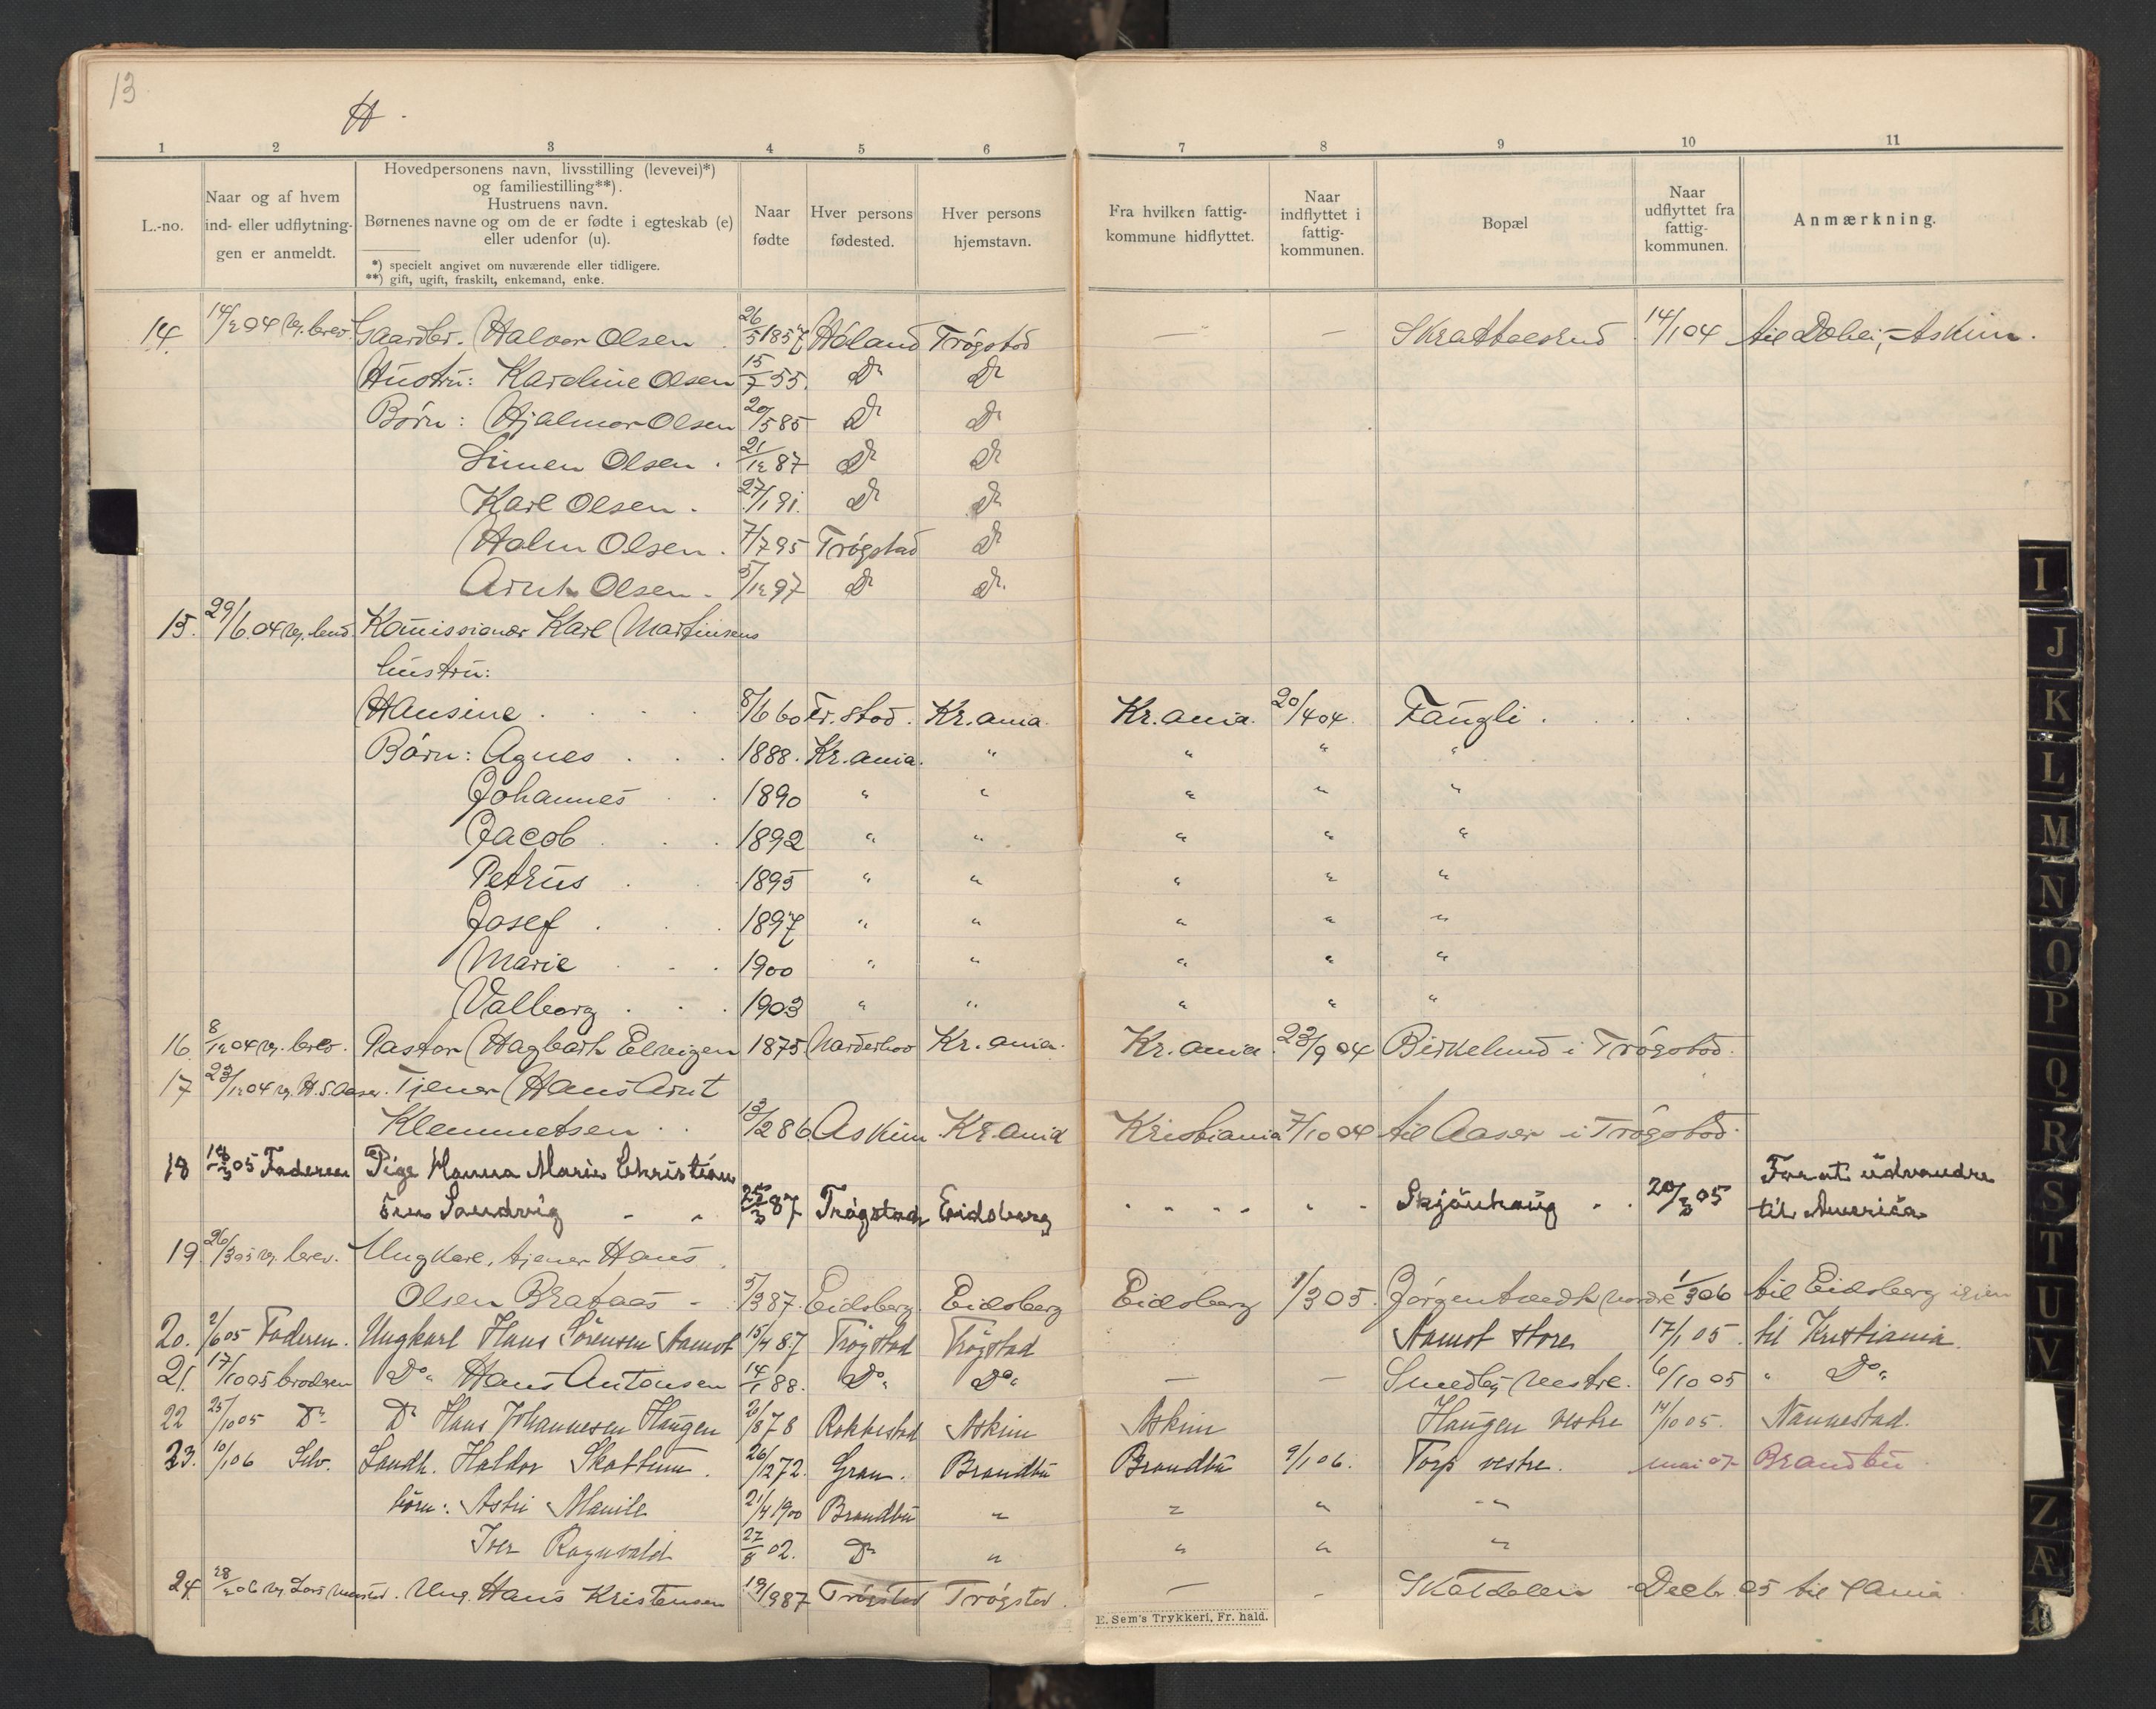 13
H.
1 2 3 4 5 6 7 8 9 10 11
L.-no.
Naar og af hvem
ind- eller udflytnin-
gen er anmeldt.
Hovedpersonens navn, livsstilling (levevei)*)
og familiestilling**).
Hustruens navn.
Børnenes navne og om de er fødte i egteskab (e)
eller udenfor (u).
*) specielt angivet om nuværende eller tidligere.
**) gift, ugift, fraskilt, enkemand, enke.
Naar
fødte
Hver persons
fødested.
Hver persons
hjemstavn.
Fra hvilken fattig-
kommune hidflyttet.
Naar
indflyttet i
fattig-
kommunen.
Bopæl
Naar
udflyttet fra
fattig-
kommunen.
Anmærkning.
14. 14/2 04 v. brev. Gaardbr. Halvor Olsen 26/5 1857 Høland Trøgstad — — 14/1 04 til Askim.
Hustru: Karoline Olsen 15/7 55. Do Do
Børn: Hjalmar Olsen 20/5 85 Do Do
Simen Olsen. 21/12 87 Do Do
Karl Olsen. 27/1 91. Do Do
Holm Olsen. 7/7 95 Trøgstad Do
Arnt Olsen. 5/12 97 Do Do.
15. 29/6. 04 v. Komissionær Karl Martinsens
hustru:
Hansine . . . 8/6 60 Fr.stad. Kr.ania. Kr.ania. 20/4 04. Fangli . . .
Børn: Agnes . . . 1888. Kr.ania. " " " "
Johannes . . 1890 " " " " "
Jacob . . . 1892 " " " " "
Petrus . . 1895 " " " " "
Josef . . . 1897 " " " " "
Marie . . . 1900 " " " " "
Valborg . . . 1903 " " " " "
16. 8/12 04 v. brev. Pastor Hagbarth Elveigen 1875 Kr.ania. Kr.ania. 23/9 04 Birkelund i Trøgstad.
17 23/12 04 v. H.S. Aaser. Tjener Hans Arnt
Klemmetsen . . 13/2 86 Askim Kr.ania Kristiania 7/10 04 til Aaser i Trøgstad.
18 18/3 05 Faderen Pige Hanna Marie Christian For at udvandre
sen Sandvig - - 25/3 87 Trøgstad Eidsberg . . . . . . Skjønhaug . . 20/3 05 til America
19. 26/3 05 v. brev. Ungkarl, tjener Hans
Olsen Brataas - 5/3 87. Eidsberg. Eidsberg Eidsberg 1/3 05. Jørgentvedt nordre 1/3 06 til Eidsberg igjen
20. 2/6 05 Faderen. Ungkarl Hans Sørensen Aamot 15/4 87 Trøgstad Trøgstad Aamot store 17/1 05. til Kristiania.
21. 17/10 05 broderen Do. Hans Antonsen 14/1 88. Do. Do. — — Smedby vestre. 6/10 05 " Do.
22 25/10 05 Do Do Hans Johannesen Haugen 2/8 78 Rakkestad Askim Askim Haugen vestre 14/10 05. Nannestad.
23. 10/1 06 Selv. Landh. Haldor Skattum. 26/12 72. Gran. Brandbu Brandbu 9/1 06. Torp vestre. mai 07 Brandbu
børn: Astri 21/4 1900 Brandbu " " " "
Iver Ragnvald 27/8 02. Do " " " "
24. 28/2 06 v. Ung. Hans Kristensen 19/9 87 Trøgstad Trøgstad. — - Skøldalen Decbr. 05 til Xania
E. Sem's Trykkeri, Fr. hald.
I
J
K
L
M
N
O
P
Q
R
S
T
U
V
Z
Æ